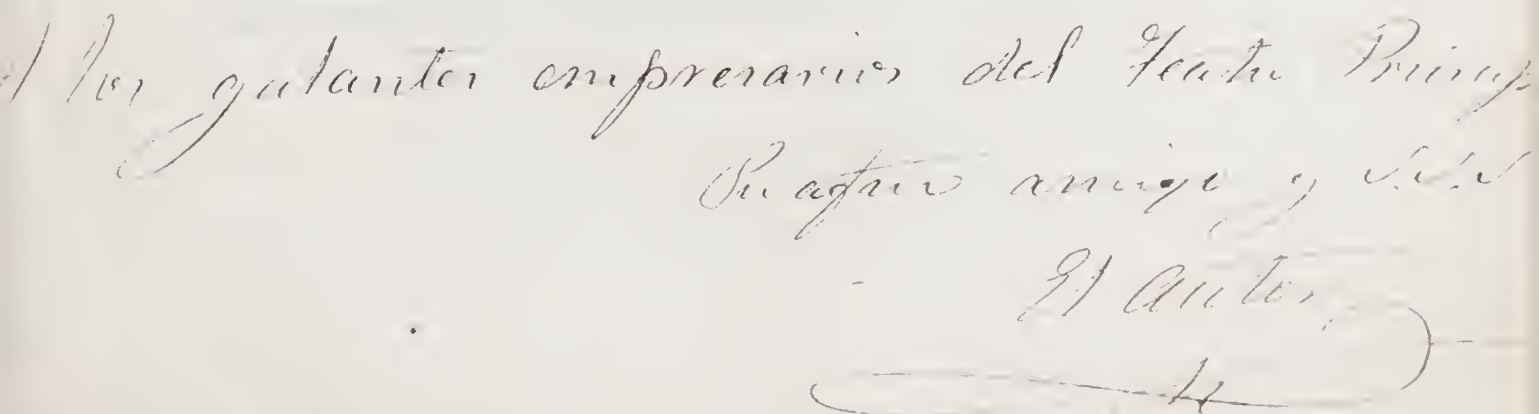 A los galantes empresarios del Teatro Princip
Su afmo amigo y S.S.S
El Autor